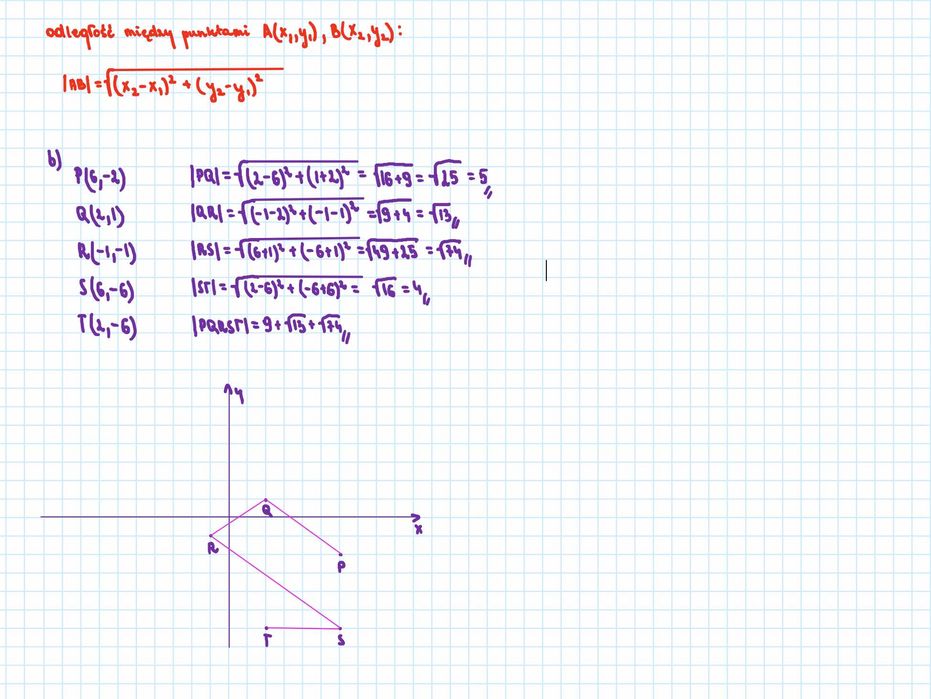 odległość między punktami A(x₁,y₁), B(x₂,y₂):
|AB|=√((x₂-x₁)² + (y₂-y₁)²)
b)
P(6,-2) |PQ|=√((2-6)²+(1+2)²) = √(16+9) = √25 = 5
Q(2,1) |QR|=√((-1-2)²+(-1-1)²) = √(9+4) = √13
R(-1,-1) |RS|=√((6+1)²+(-6+1)²) = √(49+25) = √74
S(6,-6) |ST|=√((2-6)²+(-6+6)²) = √16 = 4
T(2,-6) |PQRST|= 9+√13+√74
y
Q
x
R
P
T S